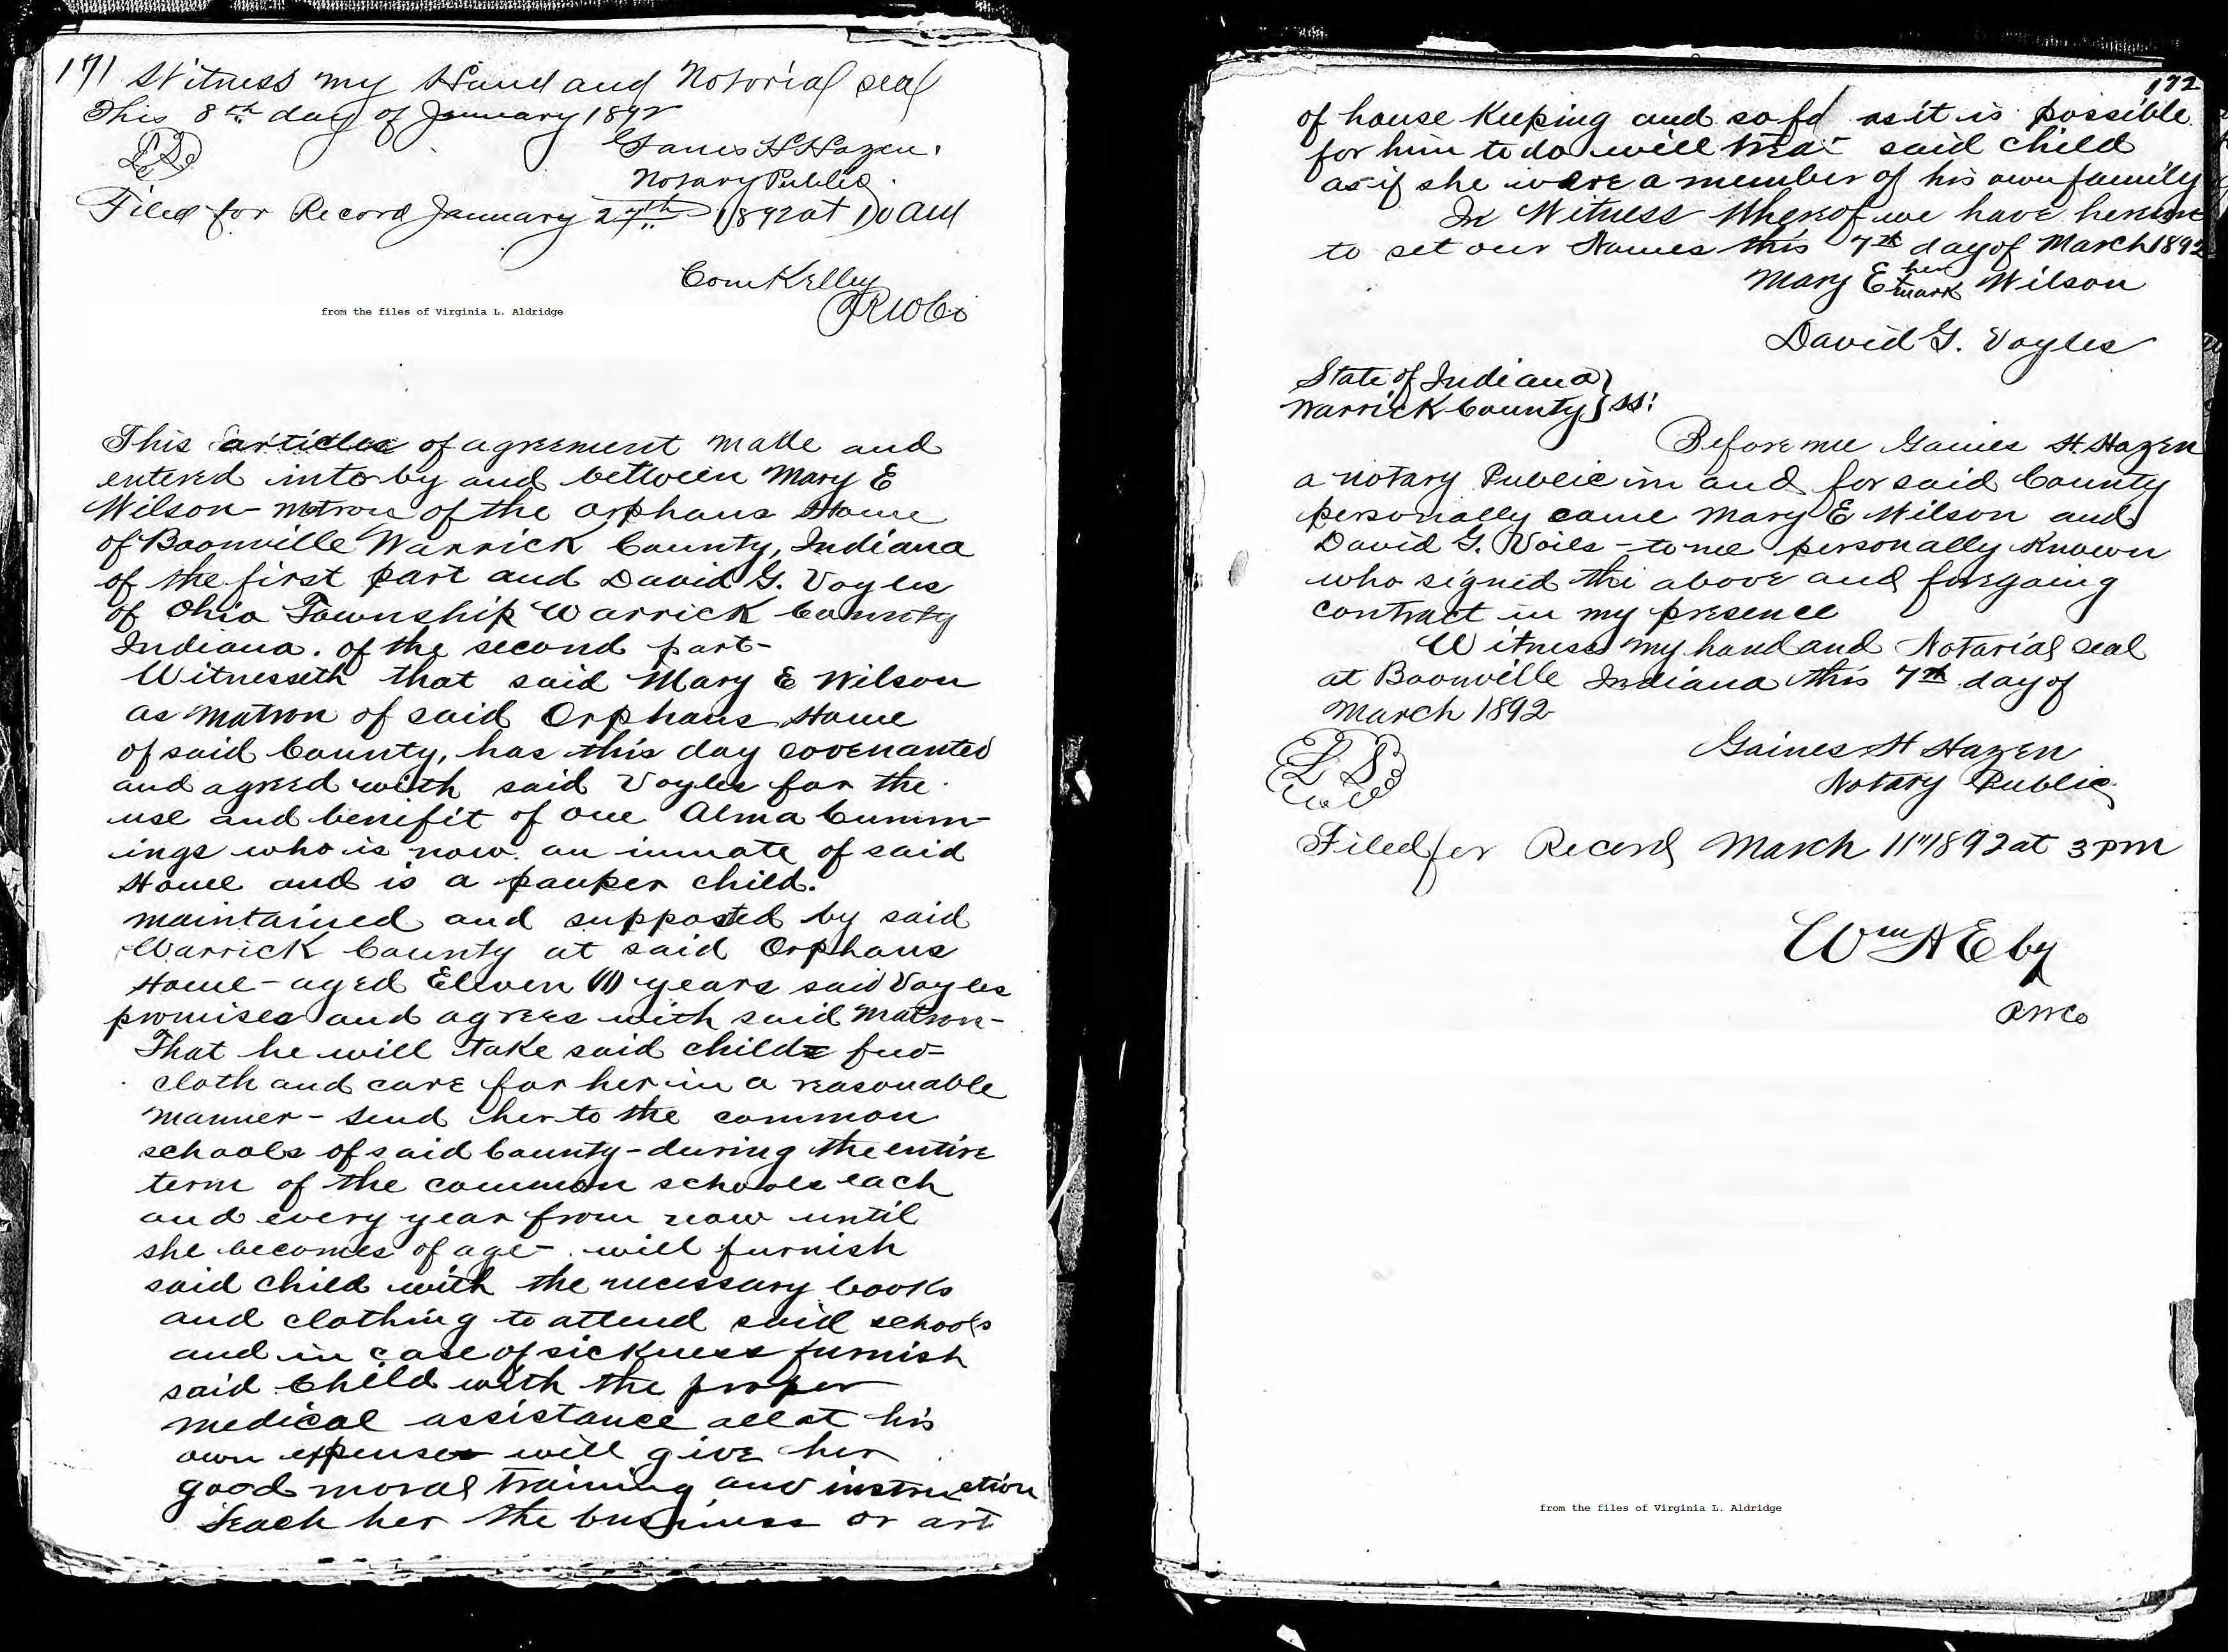 171 Witness my Hand and Notorial seal
This 8th day of January 1892
L S
Gaines H Hazen.
Notary Public.
Filed for Record January 27th 1892 at 10 AM
Com Kelley
RWCo
from the files of Virginia L. Aldridge
This articles of agreement made and
entered into by and between Mary E
Wilson - matron of the orphans Home
of Boonville Warrick County, Indiana
of the first part and David G. Voyles
of Ohio Township Warrick County
Indiana. of the second part-
Witnesseth that said Mary E Wilson
as matron of said Orphans Home
of said County, has this day covenanted
and agreed with said Voyles for the
use and benifit of one Alma Cumm-
ings who is now an inmate of said
Home and is a pauper child.
maintained and supported by said
Warrick County at said Orphans
Home - aged Eleven (11) years said Voyles
promises and agrees with said Matron-
That he will take said child
cloth and care for her in a reasonable
manner - send her to the common
schools of said County - during the entire
term of the common schools each
and every year from now until
she becomes of age - will furnish
said child with the necessary books
and clothing to attend said schools
and in case of sickness furnish
said Child with the proper
medical assistance all at his
own expense will give her
good moral training and instruction
Teach her the business or art
172
of house Keeping and so far as it is possible
for him to do will treat said child
as if she were a member of his own family
In Witness Whereof we have hereun
to set our Names this 7th day of March 1892
Mary E her mark Wilson
David G. Voyles
State of Indiana }
Warrick County } SS:
Before me Gaines H. Hazen
a notary Public in and for said County
personally came Mary E Wilson and
David G. Voils - to me personally Known
who signed the above and foregoing
contract in my presence
Witness my hand and Notarial seal
at Boonville Indiana this 7th day of
March 1892
L S
Gaines H Hazen
Notary Public
Filed for Record March 11" 1892 at 3 pm
Wm H Eby
RWCo
from the files of Virginia L. Aldridge